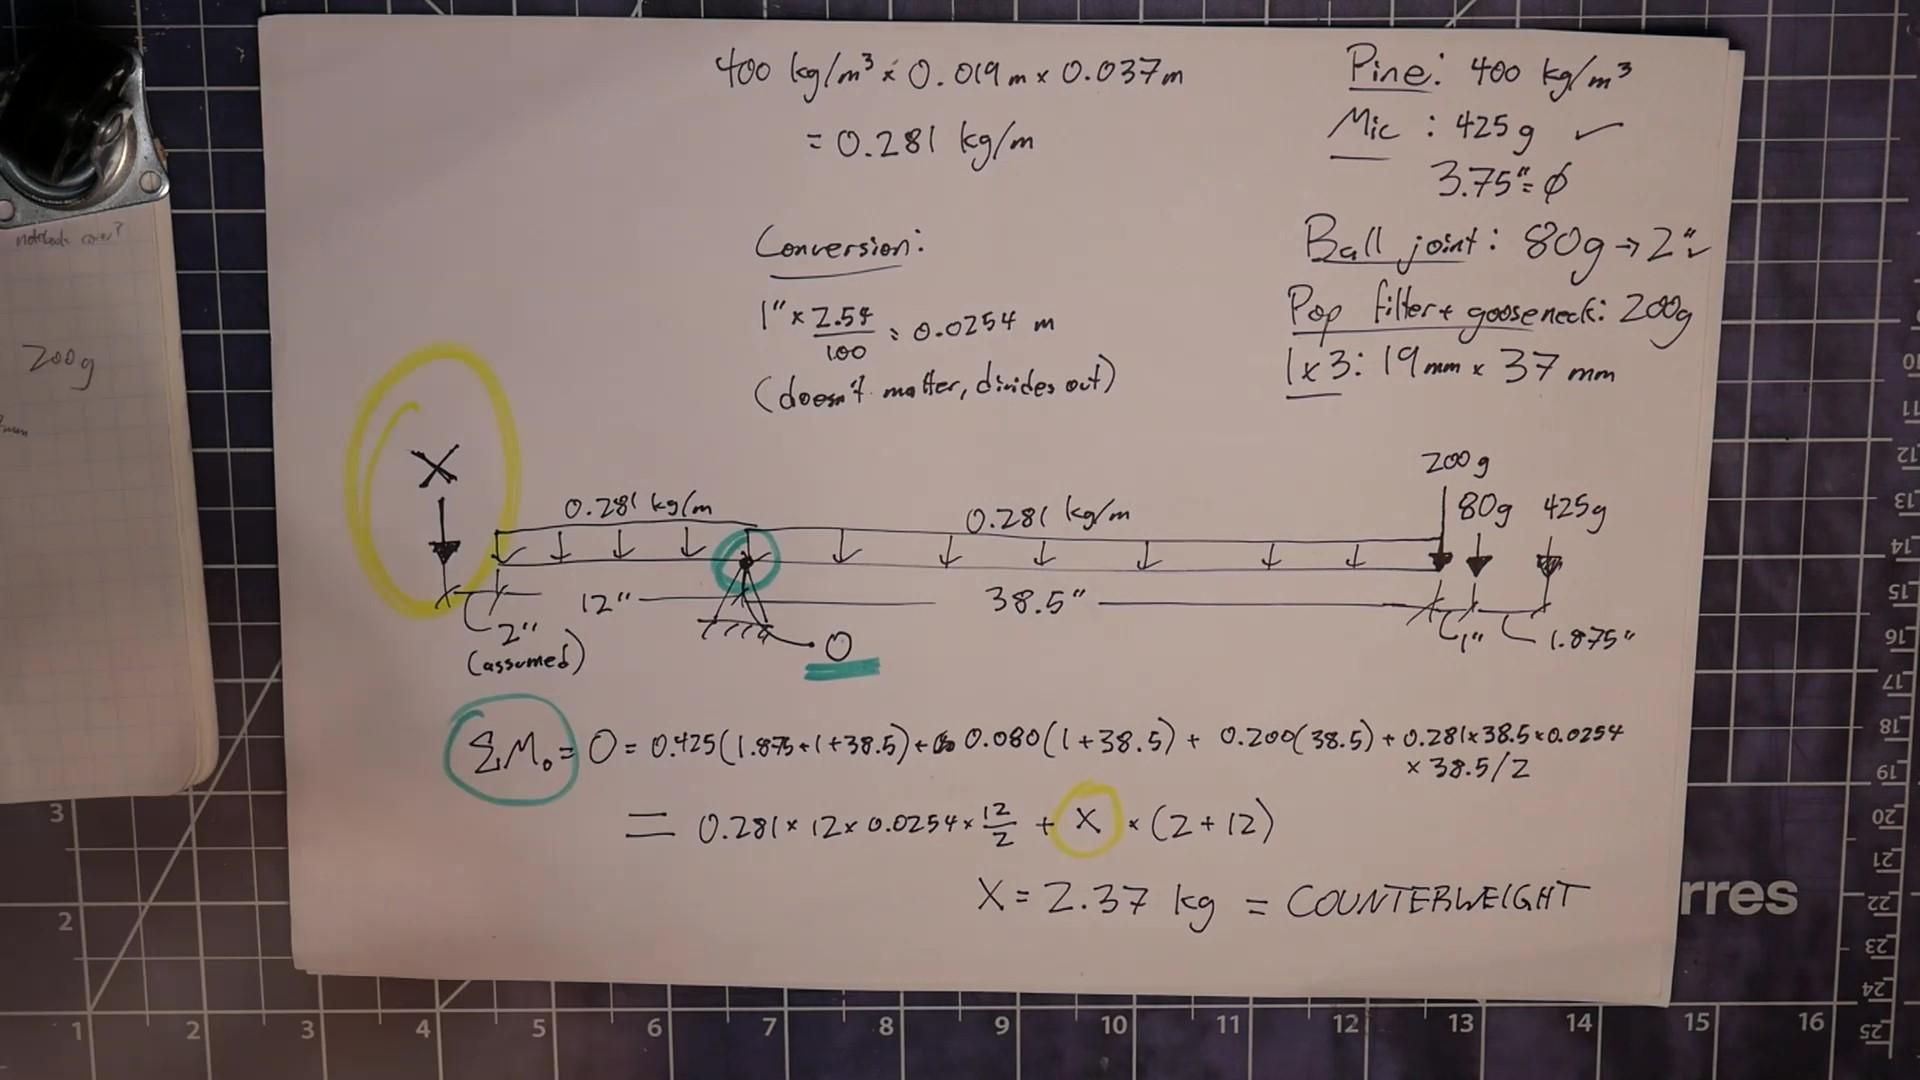 400 kg/m³ × 0.019 m × 0.037 m
= 0.281 kg/m
Pine: 400 kg/m³
Mic : 425g ✓
3.75" = ϕ
Ball joint: 80g → 2" ✓
Pop filter + gooseneck: 200g
1x3: 19mm × 37 mm
Conversion:
1" × 2.54/100 = 0.0254 m
(doesn't matter, divides out)
notebook cover?
200g
X
0.281 kg/m
0.281 kg/m
200g
80g 425g
12"
38.5"
2"
(assumed)
O
1"
1.875"
ΣM₀ = 0 = 0.425(1.875+1+38.5) + 0.080(1+38.5) + 0.200(38.5) + 0.281×38.5×0.0254
× 38.5/2
= 0.281 × 12 × 0.0254 × 12/2 + X × (2+12)
X = 2.37 kg = COUNTERWEIGHT
rres
1 2 3 4 5 6 7 8 9 10 11 12 13 14 15 16
3
2
10
11
12
13
14
15
16
17
18
19
20
21
22
23
24
25